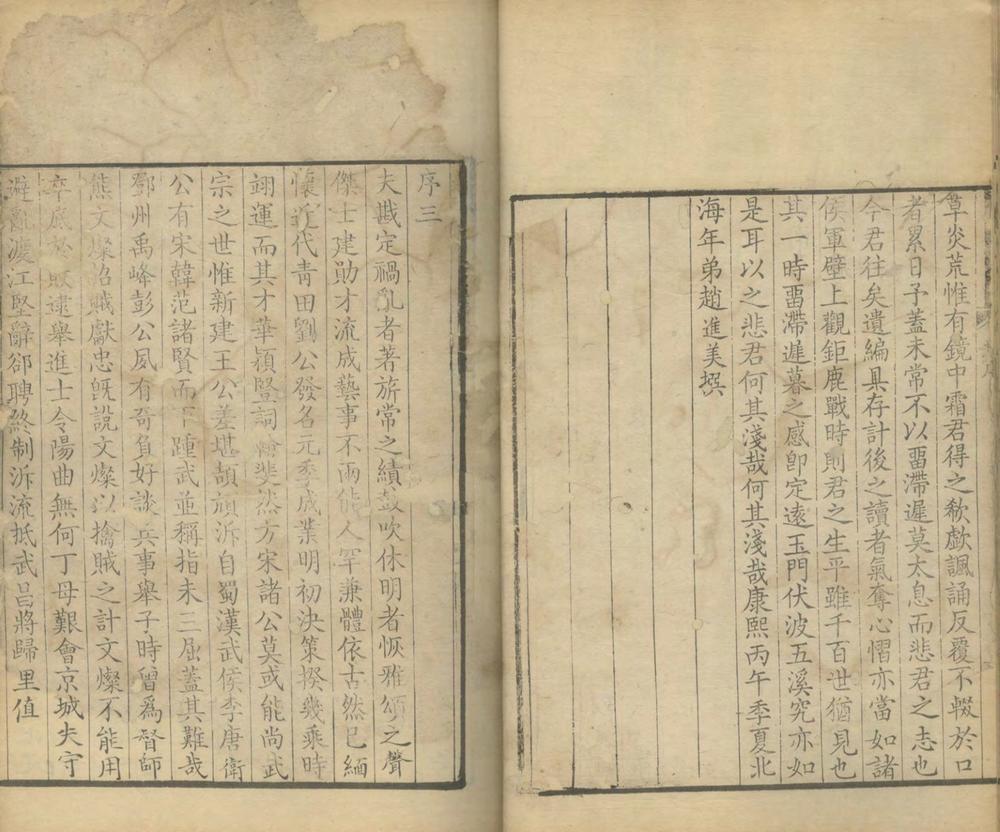 草炎荒惟有鏡中霜君得之欷歔諷誦反覆不輟於口
者累日予蓋未常不以畱滯遲莫太息而悲君之志也
今君往矣遺編具存計後之讀者氣奪心慴亦當如諸
侯軍壁上觀鉅鹿戰時則君之生平雖千百世猶見也
其一時畱滯遲暮之感卽定遠玉門伏波五溪究亦如
是耳以之悲君何其淺哉何其淺哉康熙丙午季夏北
海年弟趙進美撰
序三
夫戡定禍亂者著旂常之績鼓吹休明者恢雅頌之聲
傑士建勛才流成藝事不兩能人罕兼體依古然已緬
懷近代青田劉公發名元季成業明初決策揆幾乘時
翊運而其才華穎豎詞翰斐然方宋諸公莫或能尚武
宗之世惟新建王公差堪頡頏泝自蜀漢武侯李唐衛
公有宋韓范諸賢而下踵武並稱指未三屈蓋其難哉
鄧州禹峰彭公夙有奇負好談兵事舉子時曾爲督師
熊文燦招賊獻忠旣說文燦以擒賊之計文燦不能用
卒底於敗逮舉進士令陽曲無何丁母艱會京城失守
避亂渡江堅辭郤聘終制泝流抵武昌將歸里值